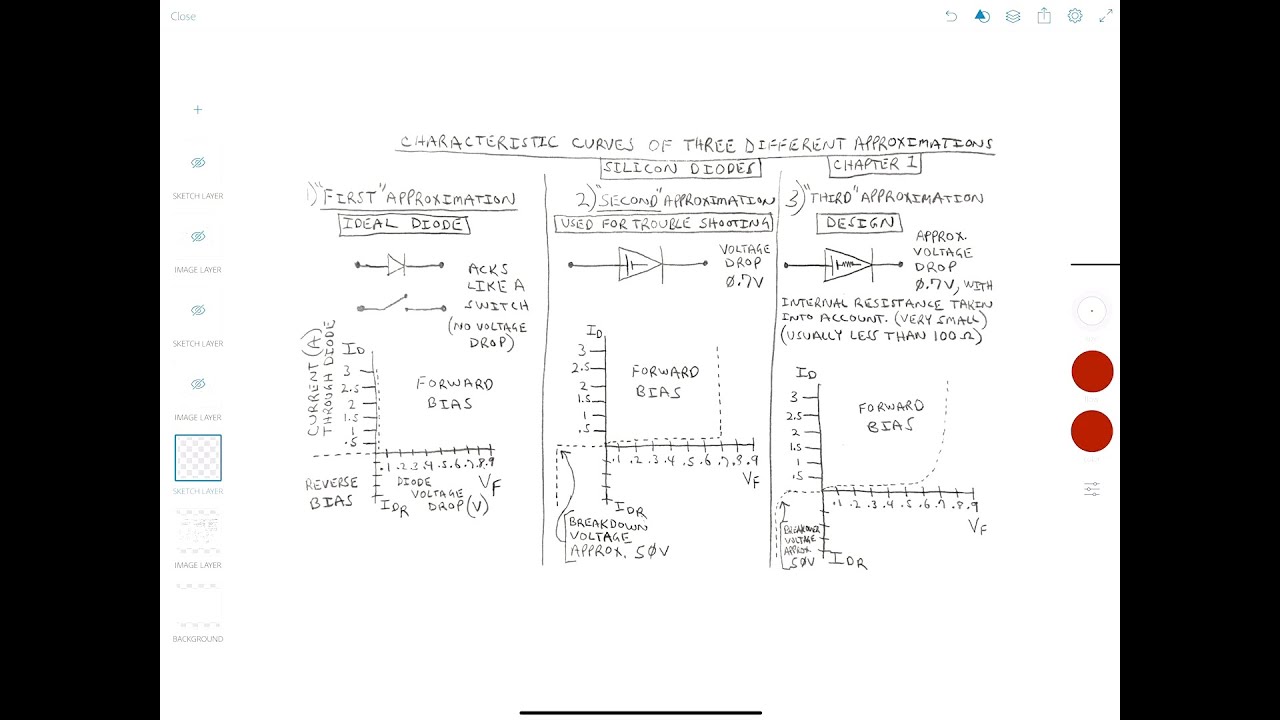 Close
CHARACTERISTIC CURVES OF THREE DIFFERENT APPROXIMATIONS
SILICON DIODES
CHAPTER 1
1) "FIRST" APPROXIMATION
IDEAL DIODE
ACKS
LIKE A
SWITCH
(NO VOLTAGE
DROP)
CURRENT (A)
THROUGH DIODE
ID
3
2.5
2
1.5
1
.5
FORWARD
BIAS
.1 .2 .3 .4 .5 .6 .7 .8 .9
REVERSE
BIAS
IDR
DIODE
VOLTAGE
DROP (V)
VF
2) "SECOND" APPROXIMATION
USED FOR TROUBLE SHOOTING
VOLTAGE
DROP
0.7V
ID
3
2.5
2
1.5
1
.5
FORWARD
BIAS
.1 .2 .3 .4 .5 .6 .7 .8 .9
VF
IDR
BREAKDOWN
VOLTAGE
APPROX. 50V
3) "THIRD" APPROXIMATION
DESIGN
APPROX.
VOLTAGE
DROP
0.7V, WITH
INTERNAL RESISTANCE TAKIN
INTO ACCOUNT. (VERY SMALL)
(USUALLY LESS THAN 100Ω)
ID
3
2.5
2
1.5
1
.5
FORWARD
BIAS
.1 .2 .3 .4 .5 .6 .7 .8 .9
VF
VOLTAGE
APPROX.
50V
IDR
SKETCH LAYER
IMAGE LAYER
SKETCH LAYER
IMAGE LAYER
SKETCH LAYER
IMAGE LAYER
BACKGROUND